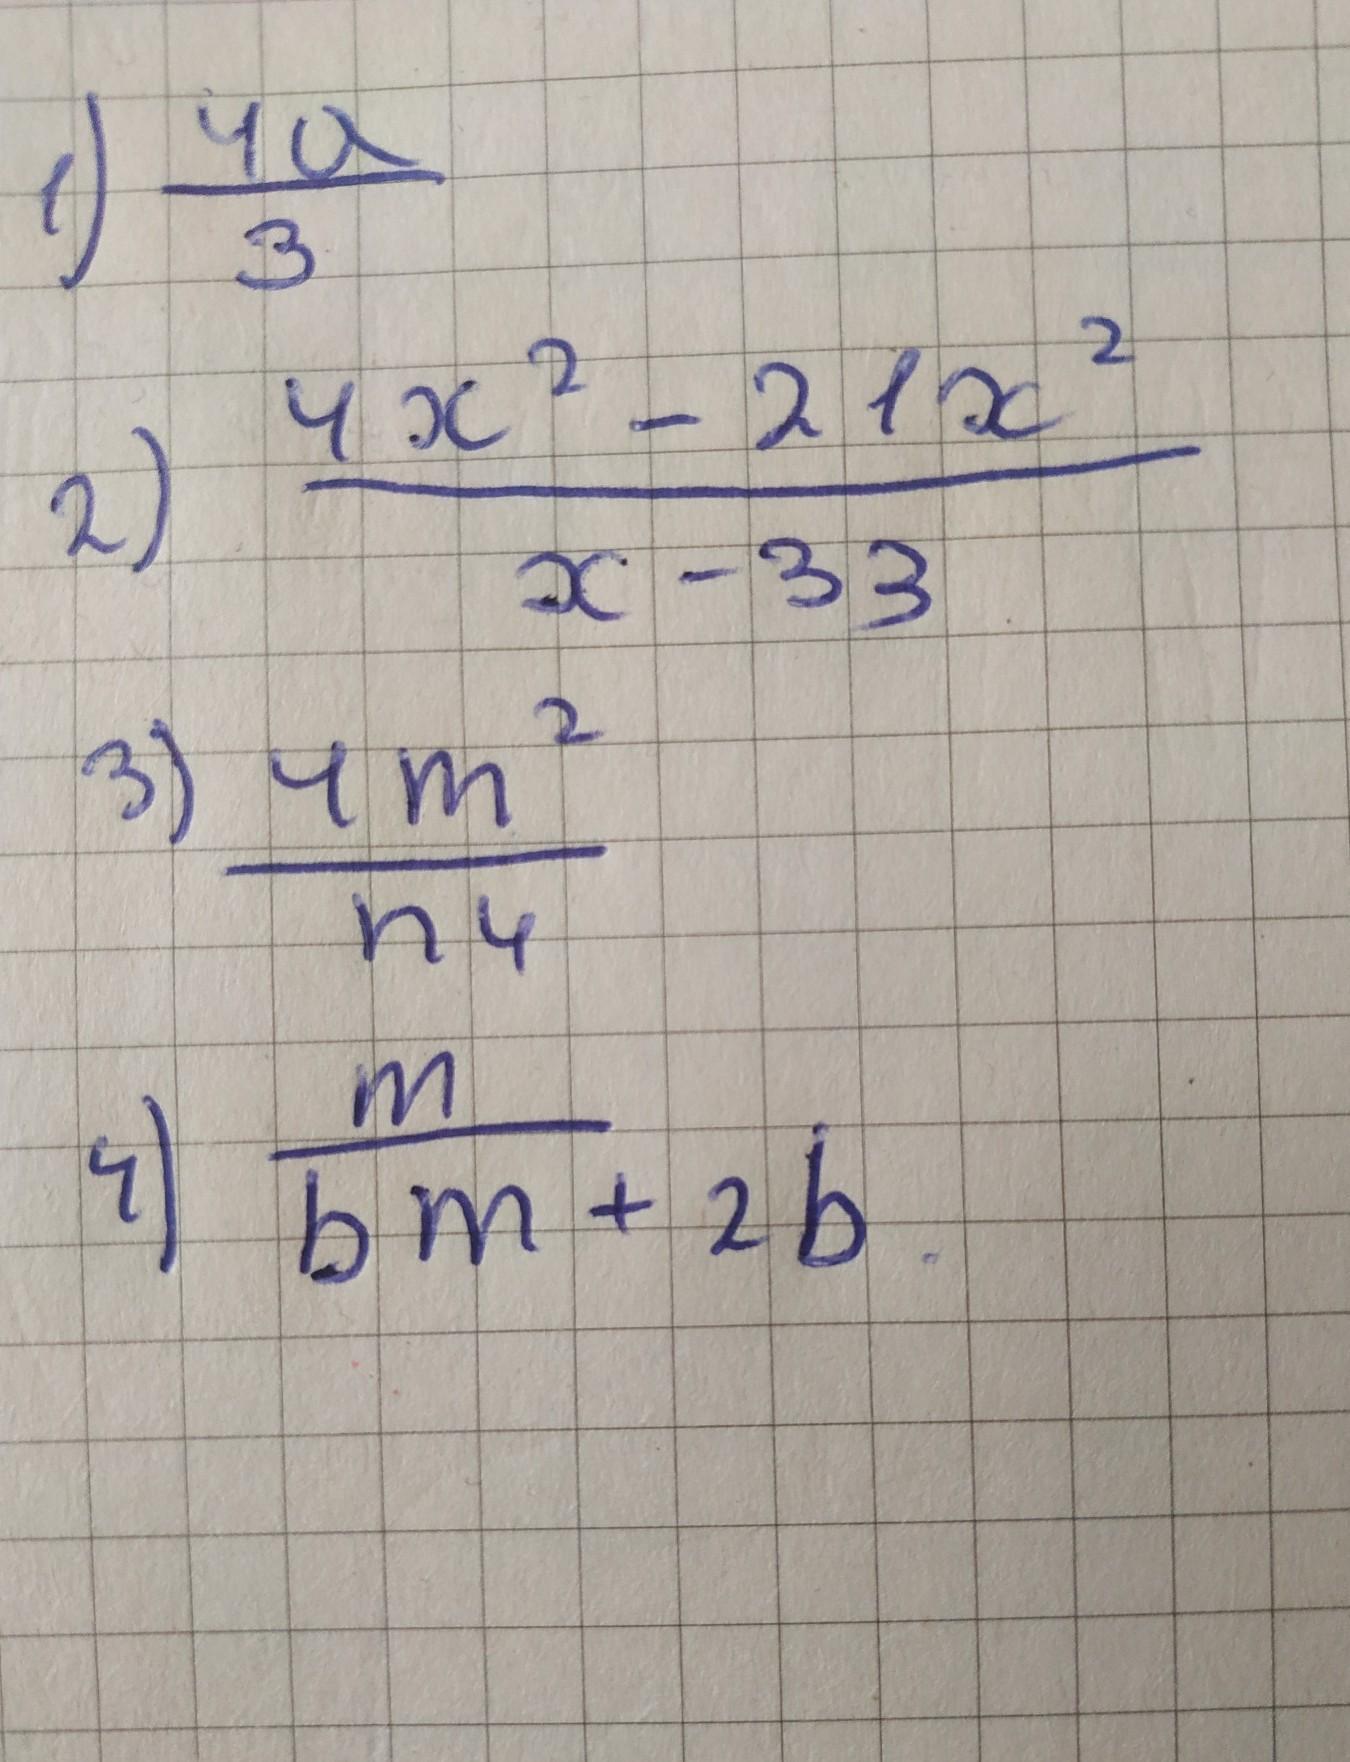 1) 4a
3
4x² - 21x²
2)
x - 33
3) 4m²
n4
m
4)
bm + 2b.